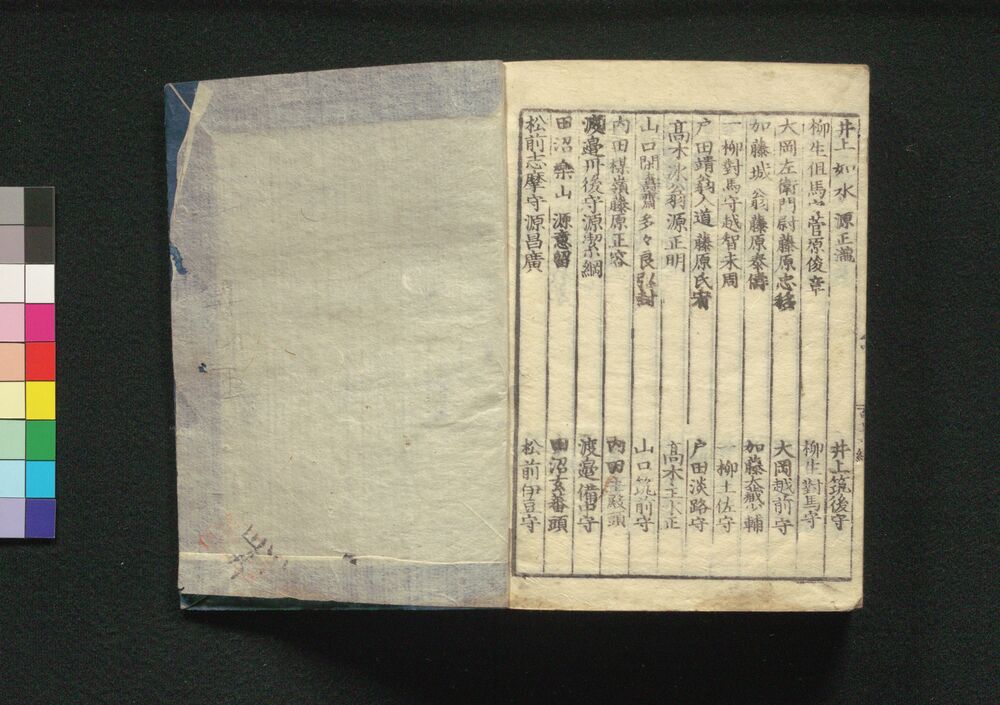 井上如水 源正瀧 井上筑後守
柳生但馬守菅原俊章 柳生對馬守
大岡左衛門尉藤原忠移 大岡越前守
加藤城翁 藤原泰儔 加藤大蔵少輔
一柳對馬守越智末周 一柳土佐守
戸田靖翁入道 藤原氏宥 戸田淡路守
高木冰翁源正明 高木主水正
山口閑壽齋多々良弘封 山口筑前守
内田楳嶺藤原正容 内田主殿頭
渡邉丹後守源潔綱 渡邉備中守
田沼樂山 源意留 田沼玄蕃頭
松前志摩守源昌廣 松前伊豆守